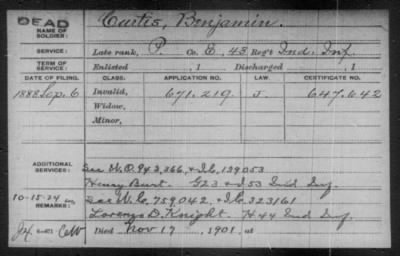 DEAD
NAME OF SOLDIER: Curtis, Benjamin.
SERVICE: Late rank, P. Co. E, 43 Reg't Ind. Inf.
TERM OF SERVICE: Enlisted , 1 Discharged , 1
DATE OF FILING. CLASS. APPLICATION NO. LAW. CERTIFICATE NO.
1888 Sep. 6 Invalid, 671.219 J. 647.642
Widow,
Minor,
ADDITIONAL SERVICES:
See W.O. 943,366 & I.C. 139053
Henry Burt. G 23 & I 53 Ind Inf.
10-15-24
REMARKS:
See W.C. 759,042, & I.C. 323161
Lorenzo D. Knight. H 44 Ind Inf.
Died Nov 17, 1901, at